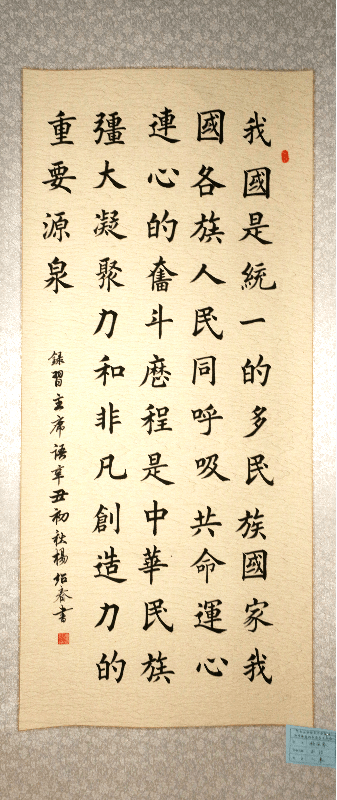 我國是統一的多民族國家我
國各族人民同呼吸共命運心
連心的奮斗歷程是中華民族
彊大凝聚力和非凡創造力的
重要源泉
録習主席語辛丑初秋楊紹春書